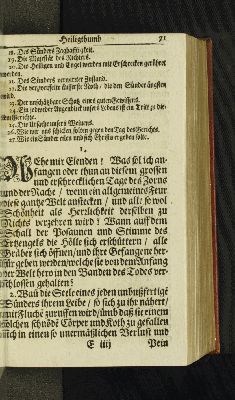 Heiligthumb 71
18. Des Sünders Zaghafftigkeit.
19. Die Majestät des Richters.
20. Die Heiligen und Engel werden mit Erschrecken gerühret
werden.
21. Des Sünders verwirrter Zustand.
22. Die verzweiffelte äusserste Noth, die den Sünder ängsten
wird.
23. Der unschätzbare Schatz eines guten Gewissens.
24. Ein jedweder Augenblick unsers Lebens ist ein Tritt zu die-
25. Die Ursache unsers Weinens.
26. Wie wir uns schicken sollen gegen den Tag des Gerichts.
27. Wie ein Sünder sich Christum ergeben solle.
1.
WEhe mir Elenden! Was sol ich an-
fangen oder thun an diesem grossen
und erschrecklichen Tage des Zorns
und der Rache / wenn ein allgemeines Feur
diese gantze Welt anstecken / und all: so wol
Schönheit als Herrlichkeit derselben zu
Nichts verzehren wird? Wann auff den
Schall der Posaunen und Stimme des
Ertzengels die Hölle sich erschüttern / alle
Gräber sich öffnen / und ihre Gefangene her-
für geben werden / welche sie von dem Anfang
der Welt hero in den Banden des Todes ver-
schlossen gehalten?
2. Wañ die Seele eines jeden unbußfertigen
Sünders ihrem Leibe / so sich zu ihr nähert /
mit Fluche zuruffen wird / umb daß sie einem
solchen schnöde Cörper und Koth zu gefallen
sich in einen so unermäßlichen Verlust und
E iiij Pein